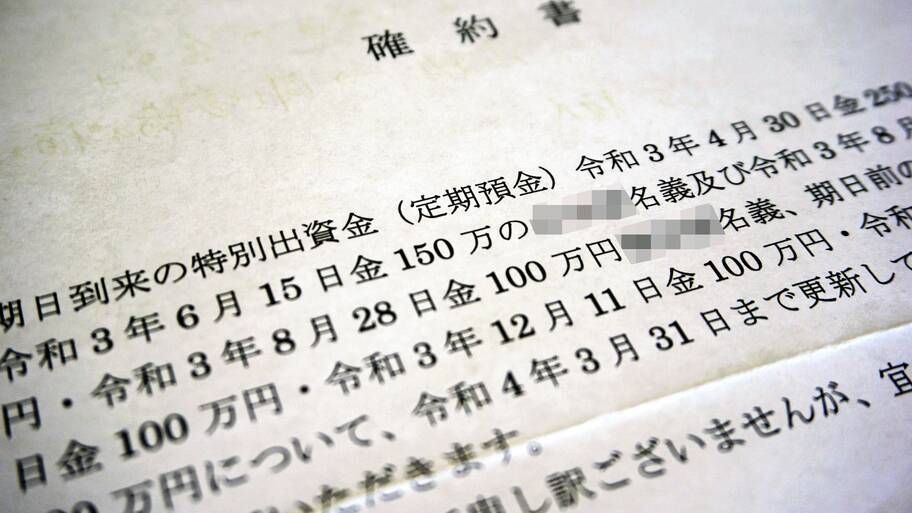 確約書
期日到来の特別出資金（定期預金）令和3年4月30日金250
令和3年6月15日金150万の名義及び令和3年8月
円・令和3年8月28日金100万円名義、期日前の
日金100万円・令和3年12月11日金100万円・令和
万円について、令和4年3月31日まで更新して
いただきます。
申し訳ございませんが、宜